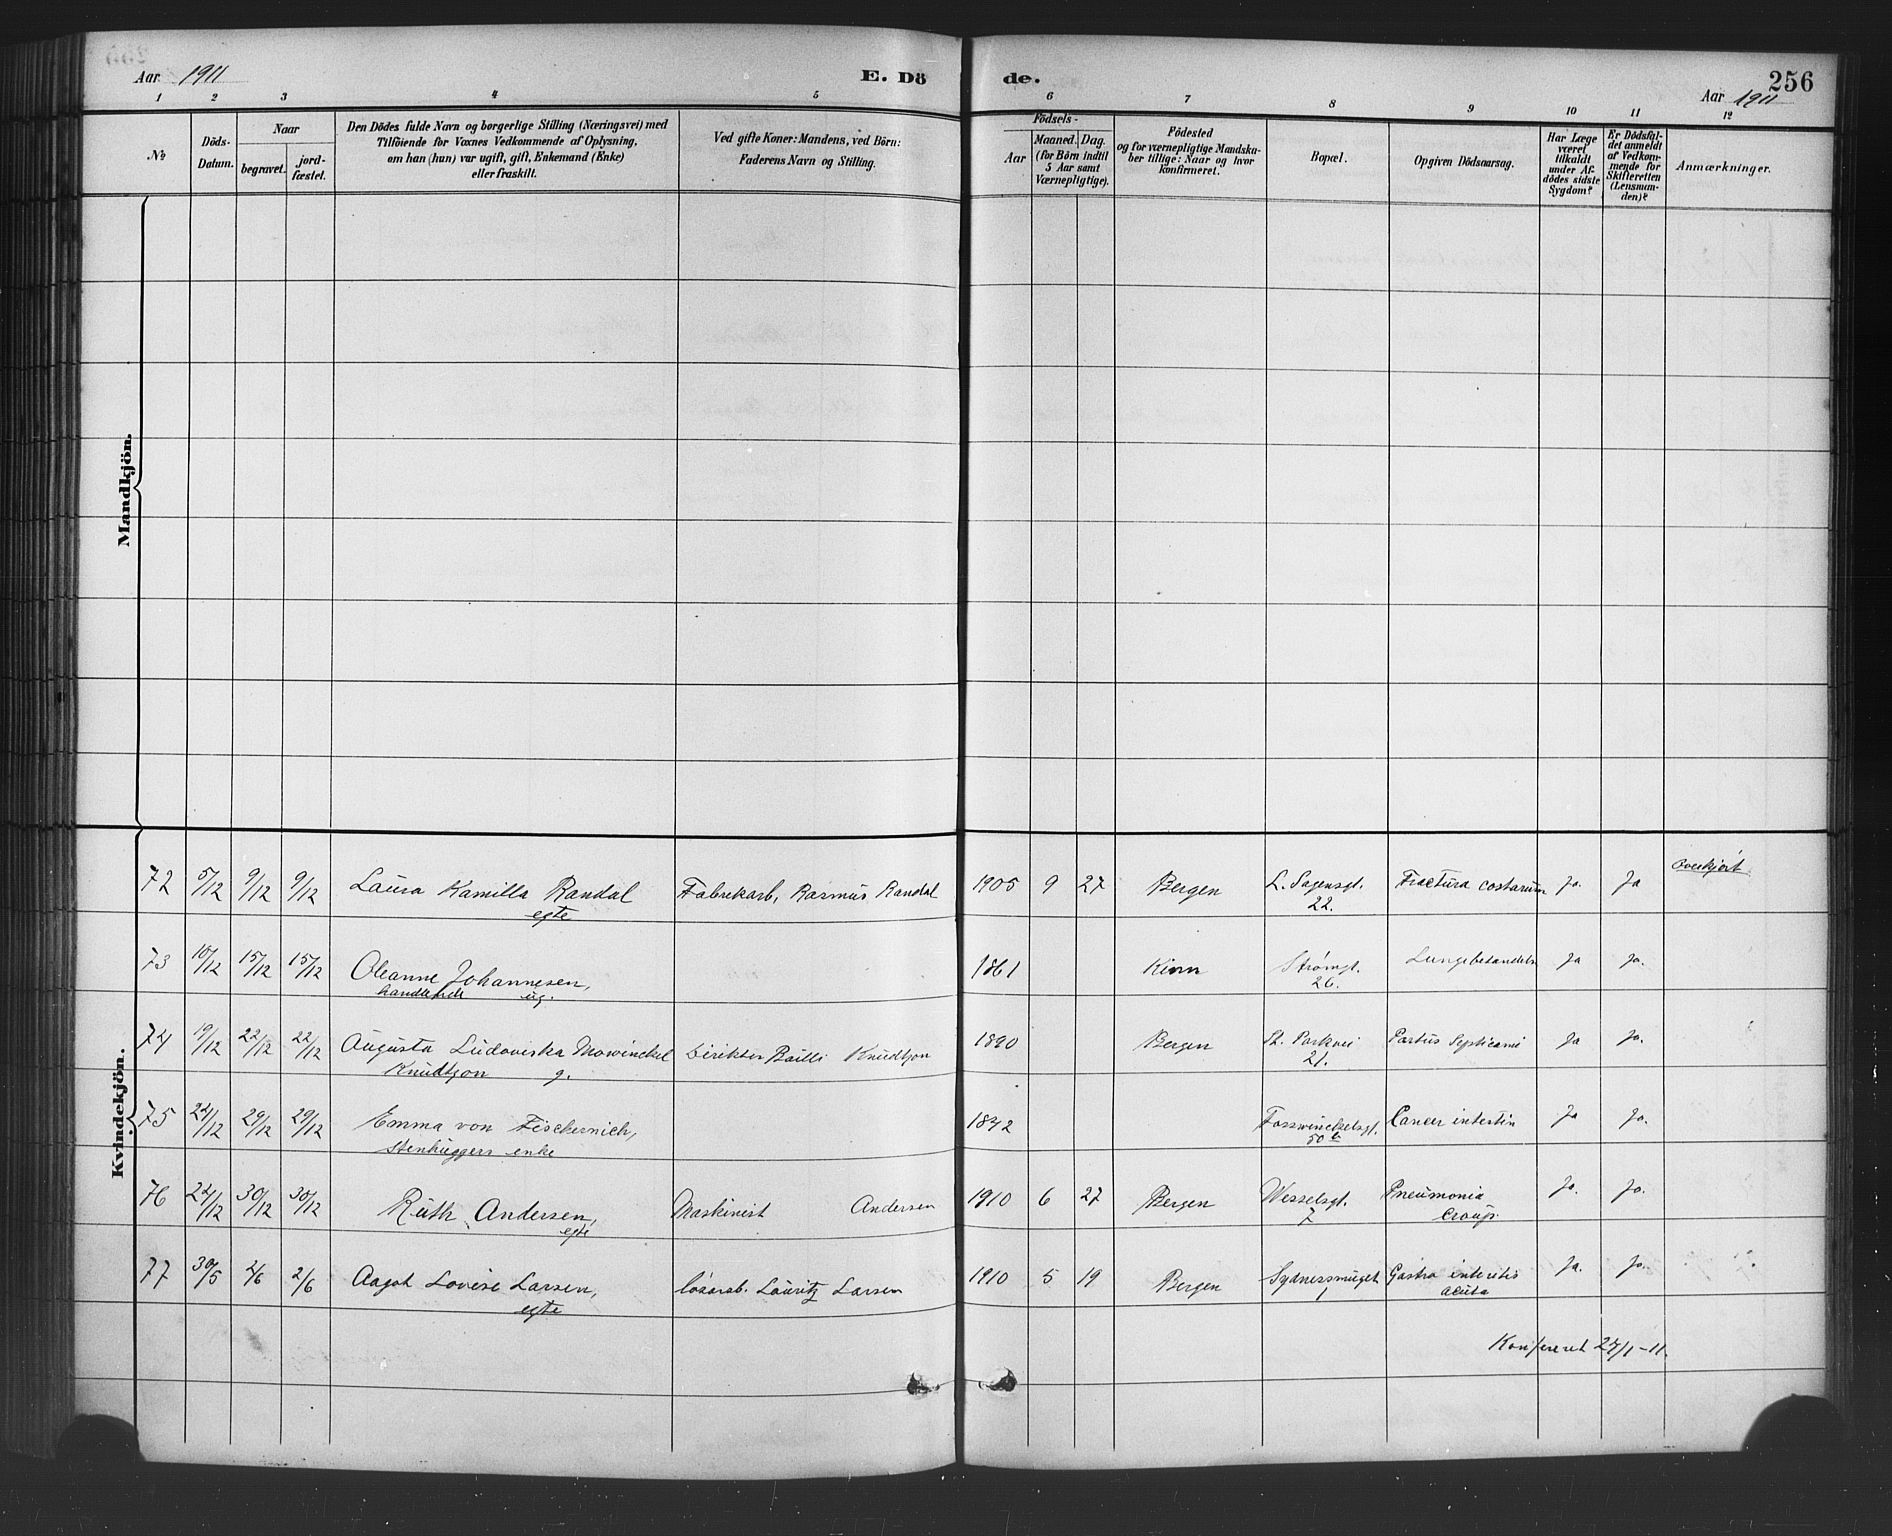 Aar 1911
E. Dö
de.
256
Aar 1911
1 2 3 4 5 6 7 8 9 10 11 12
№
Döds-
Datum.
Naar
begravet.
jord-
fæstet.
Den Dödes fulde Navn og borgerlige Stilling (Næringsvei) med
Tilföiende for Voxnes Vedkommende af Oplysning,
om han (hun) var ugift, gift, Enkemand (Enke)
eller fraskilt.
Ved gifte Koner: Mandens, ved Börn:
Faderens Navn og Stilling.
Födsels-
Aar
Maaned.
Dag.
(for Börn indtil
5 Aar samt
Værnepligtige).
Födested
og for værnepligtige Mandska-
ber tillige: Naar og hvor
konfirmeret.
Bopæl.
Opgiven Dödsaarsag.
Har Læge
været
tilkaldt
under Af-
dödes sidste
Sygdom?
Er Dödsfal-
det anmeldt
af Vedkom-
mende for
Skifteretten
(Lensman-
den)?
Anmærkninger.
Mandkjön.
Kvindekjön.
72 5/12 9/12 9/12 Laura Kamilla Randal Fabrekarb. Rasmus Randal 1905 9 27 Bergen L. Sagensgt. Fractura costarum Ja. Ja Overkjørt
egte 22.
73 10/12 15/12 15/12 Oleanne Johannesen, 1861 Kinn Strømgt. Ja Ja.
handlende ug. 26.
74 19/12 22/12 22/12 Augusta Ludoviska Mowinckel Direktør Knudtzon 1890 Bergen St. Parkvei Partus Septicæmi Ja Ja.
Knudtzon g. 21.
75 24/12 29/12 29/12 Emma von Fischernich, 1842 Fosswinckelsgt. Cancer intestin Ja Ja.
Stenhuggers enke 50 b
76 24/12 30/12 30/12 Ruth Andersen, Maskinist Andersen 1910 6 27 Bergen Wesselsgt. Pneumonia Ja. Ja.
egte 7 Croup.
77 30/5 2/6 2/6 Aagot Lovise Larsen, Løsarb. Lauritz Larsen 1910 5 19 Bergen Sydnessmuget Gastro interitis Ja. Ja.
egte 1 acuta
Konfereret 27/1-11.